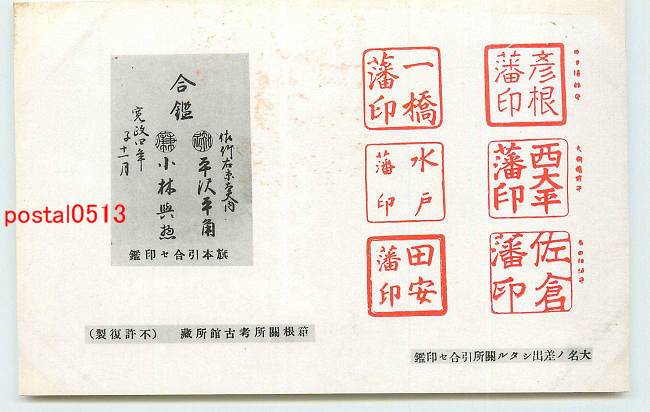 彦根藩印
一橋藩印
西大平藩印
水戸藩印
佐倉藩印
田安藩印
大名ノ差出シタル關所引合セ印鑑
合鑑
佐竹右京大夫内
平沢平角
小林與惣
寛政四年
子十一月
旗本引合セ印鑑
箱根關所考古館所藏
(不許復製)
postal0513